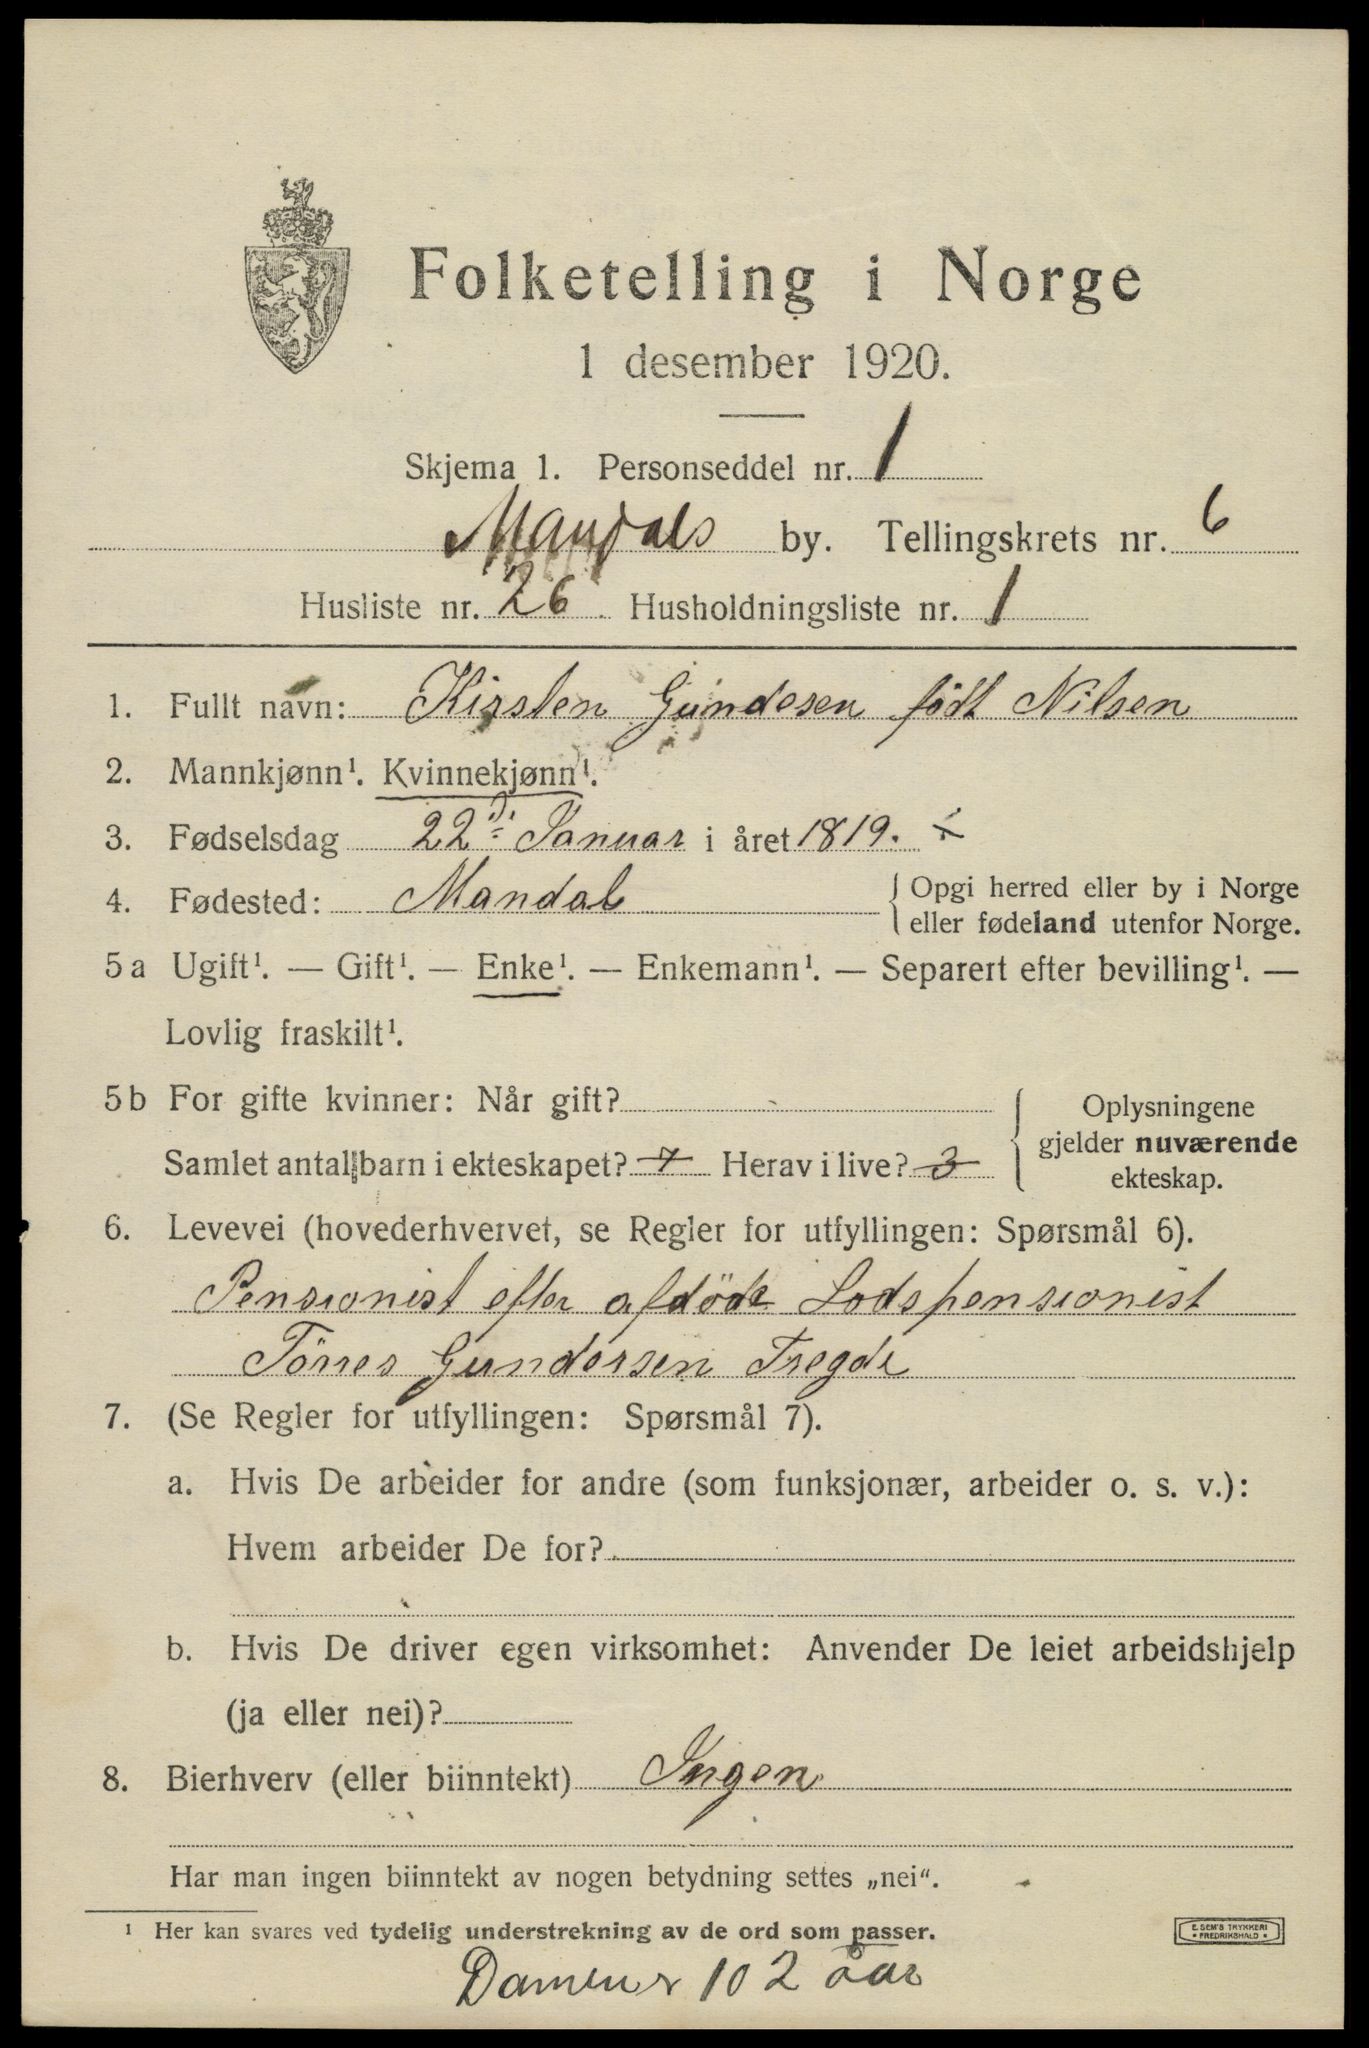 Folketelling i Norge
1 desember 1920.
Skjema 1. Personseddel nr. 1
Mandals by. Tellingskrets nr. 6
Husliste nr. 26. Husholdningsliste nr. 1
1. Fullt navn: Kirsten Gundesen födt Nilsen
2. Mannkjønn¹. Kvinnekjønn¹.
3. Fødselsdag 22di Januar i året 1819.
4. Fødested: Mandal { Opgi herred eller by i Norge
eller fødeland utenfor Norge.
5a Ugift¹. — Gift¹. — Enke¹. — Enkemann¹. — Separert efter bevilling¹. —
Lovlig fraskilt¹.
5b For gifte kvinner: Når gift?
Samlet antal barn i ekteskapet? 7 Herav i live? 3
{ Oplysningene
gjelder nuværende
ekteskap.
6. Levevei (hovederhvervet, se Regler for utfyllingen: Spørsmål 6).
Pensionist efter afdöde Lodspensionist
Törres Gundersen Tregde
7. (Se Regler for utfyllingen: Spørsmål 7).
a. Hvis De arbeider for andre (som funksjonær, arbeider o. s. v.):
Hvem arbeider De for?
b. Hvis De driver egen virksomhet: Anvender De leiet arbeidshjelp
(ja eller nei)?
8. Bierhverv (eller biinntekt) Ingen
Har man ingen biinntekt av nogen betydning settes „nei“.
¹ Her kan svares ved tydelig understrekning av de ord som passer.
E. SEM'S TRYKKERI
• FREDRIKSHALD •
Damen er 102 aar